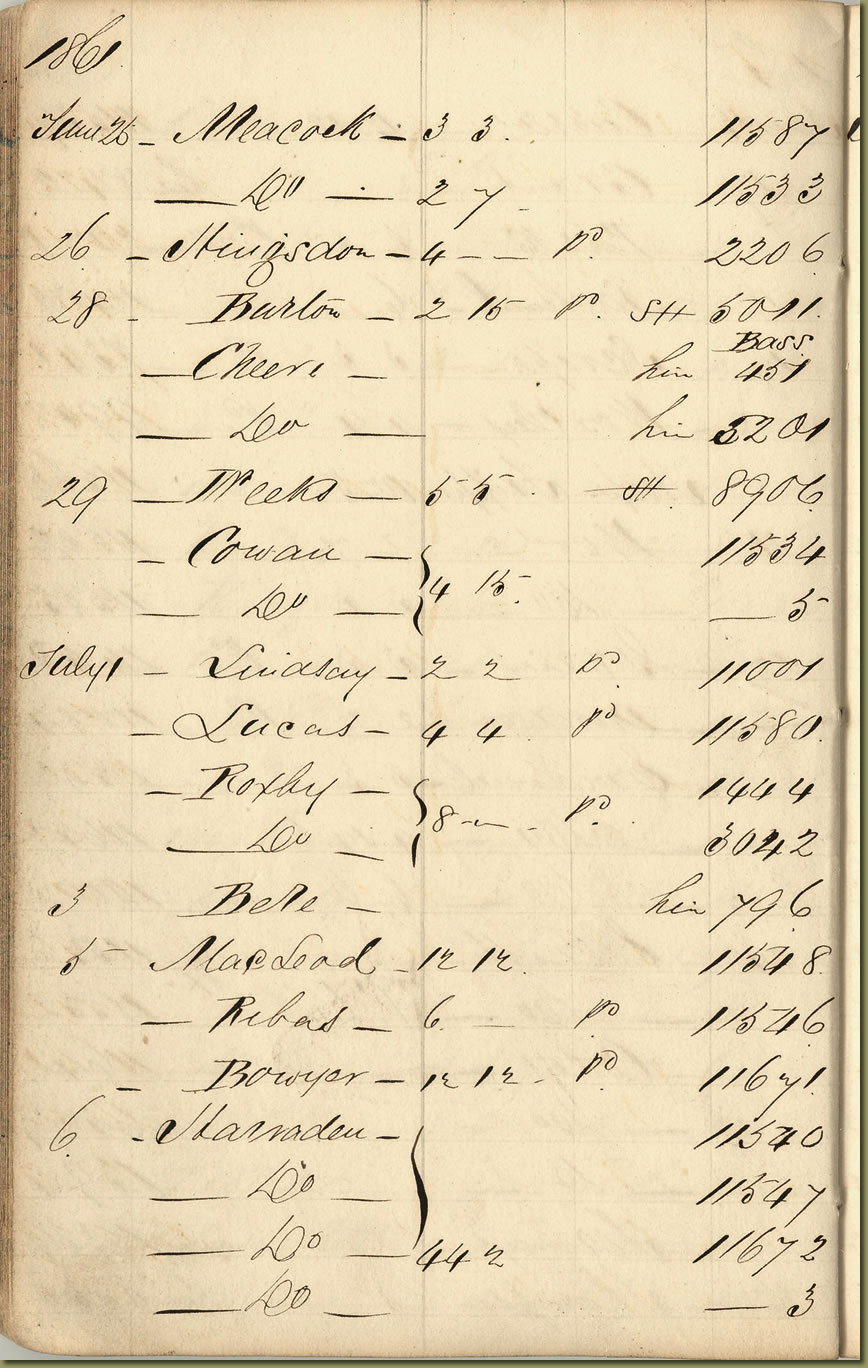 1861.
June 25 - Meacock - 3 3. 11587
— Do — 2 7 - 11533
26 - Hingsdon - 4 - - pd. 2206
28 - Burton - 2 15 pd. SH 5011.
Bass
— Cheere — hin 451
— Do — hin 5201
29 — Weeks — 5 5. — SH. 8906
- Cowan — 11534
— Do — } 4 15. — 5
July 1 — Lindsay - 2 2 pd. 11001
— Lucas - 4 4. pd 11580.
— Roxby — 1444
— Do — } 8 - - pd. 3042
3 Bele — hin 796
5 - MacLeod - 12 12. 11548.
— Ribas — 6. — pd 11546
- Bowyer - 12 12 - pd. 11671.
6. - Harraden - 11540
— Do — 11547
— Do — } 44 2 11672
— Do — — 3